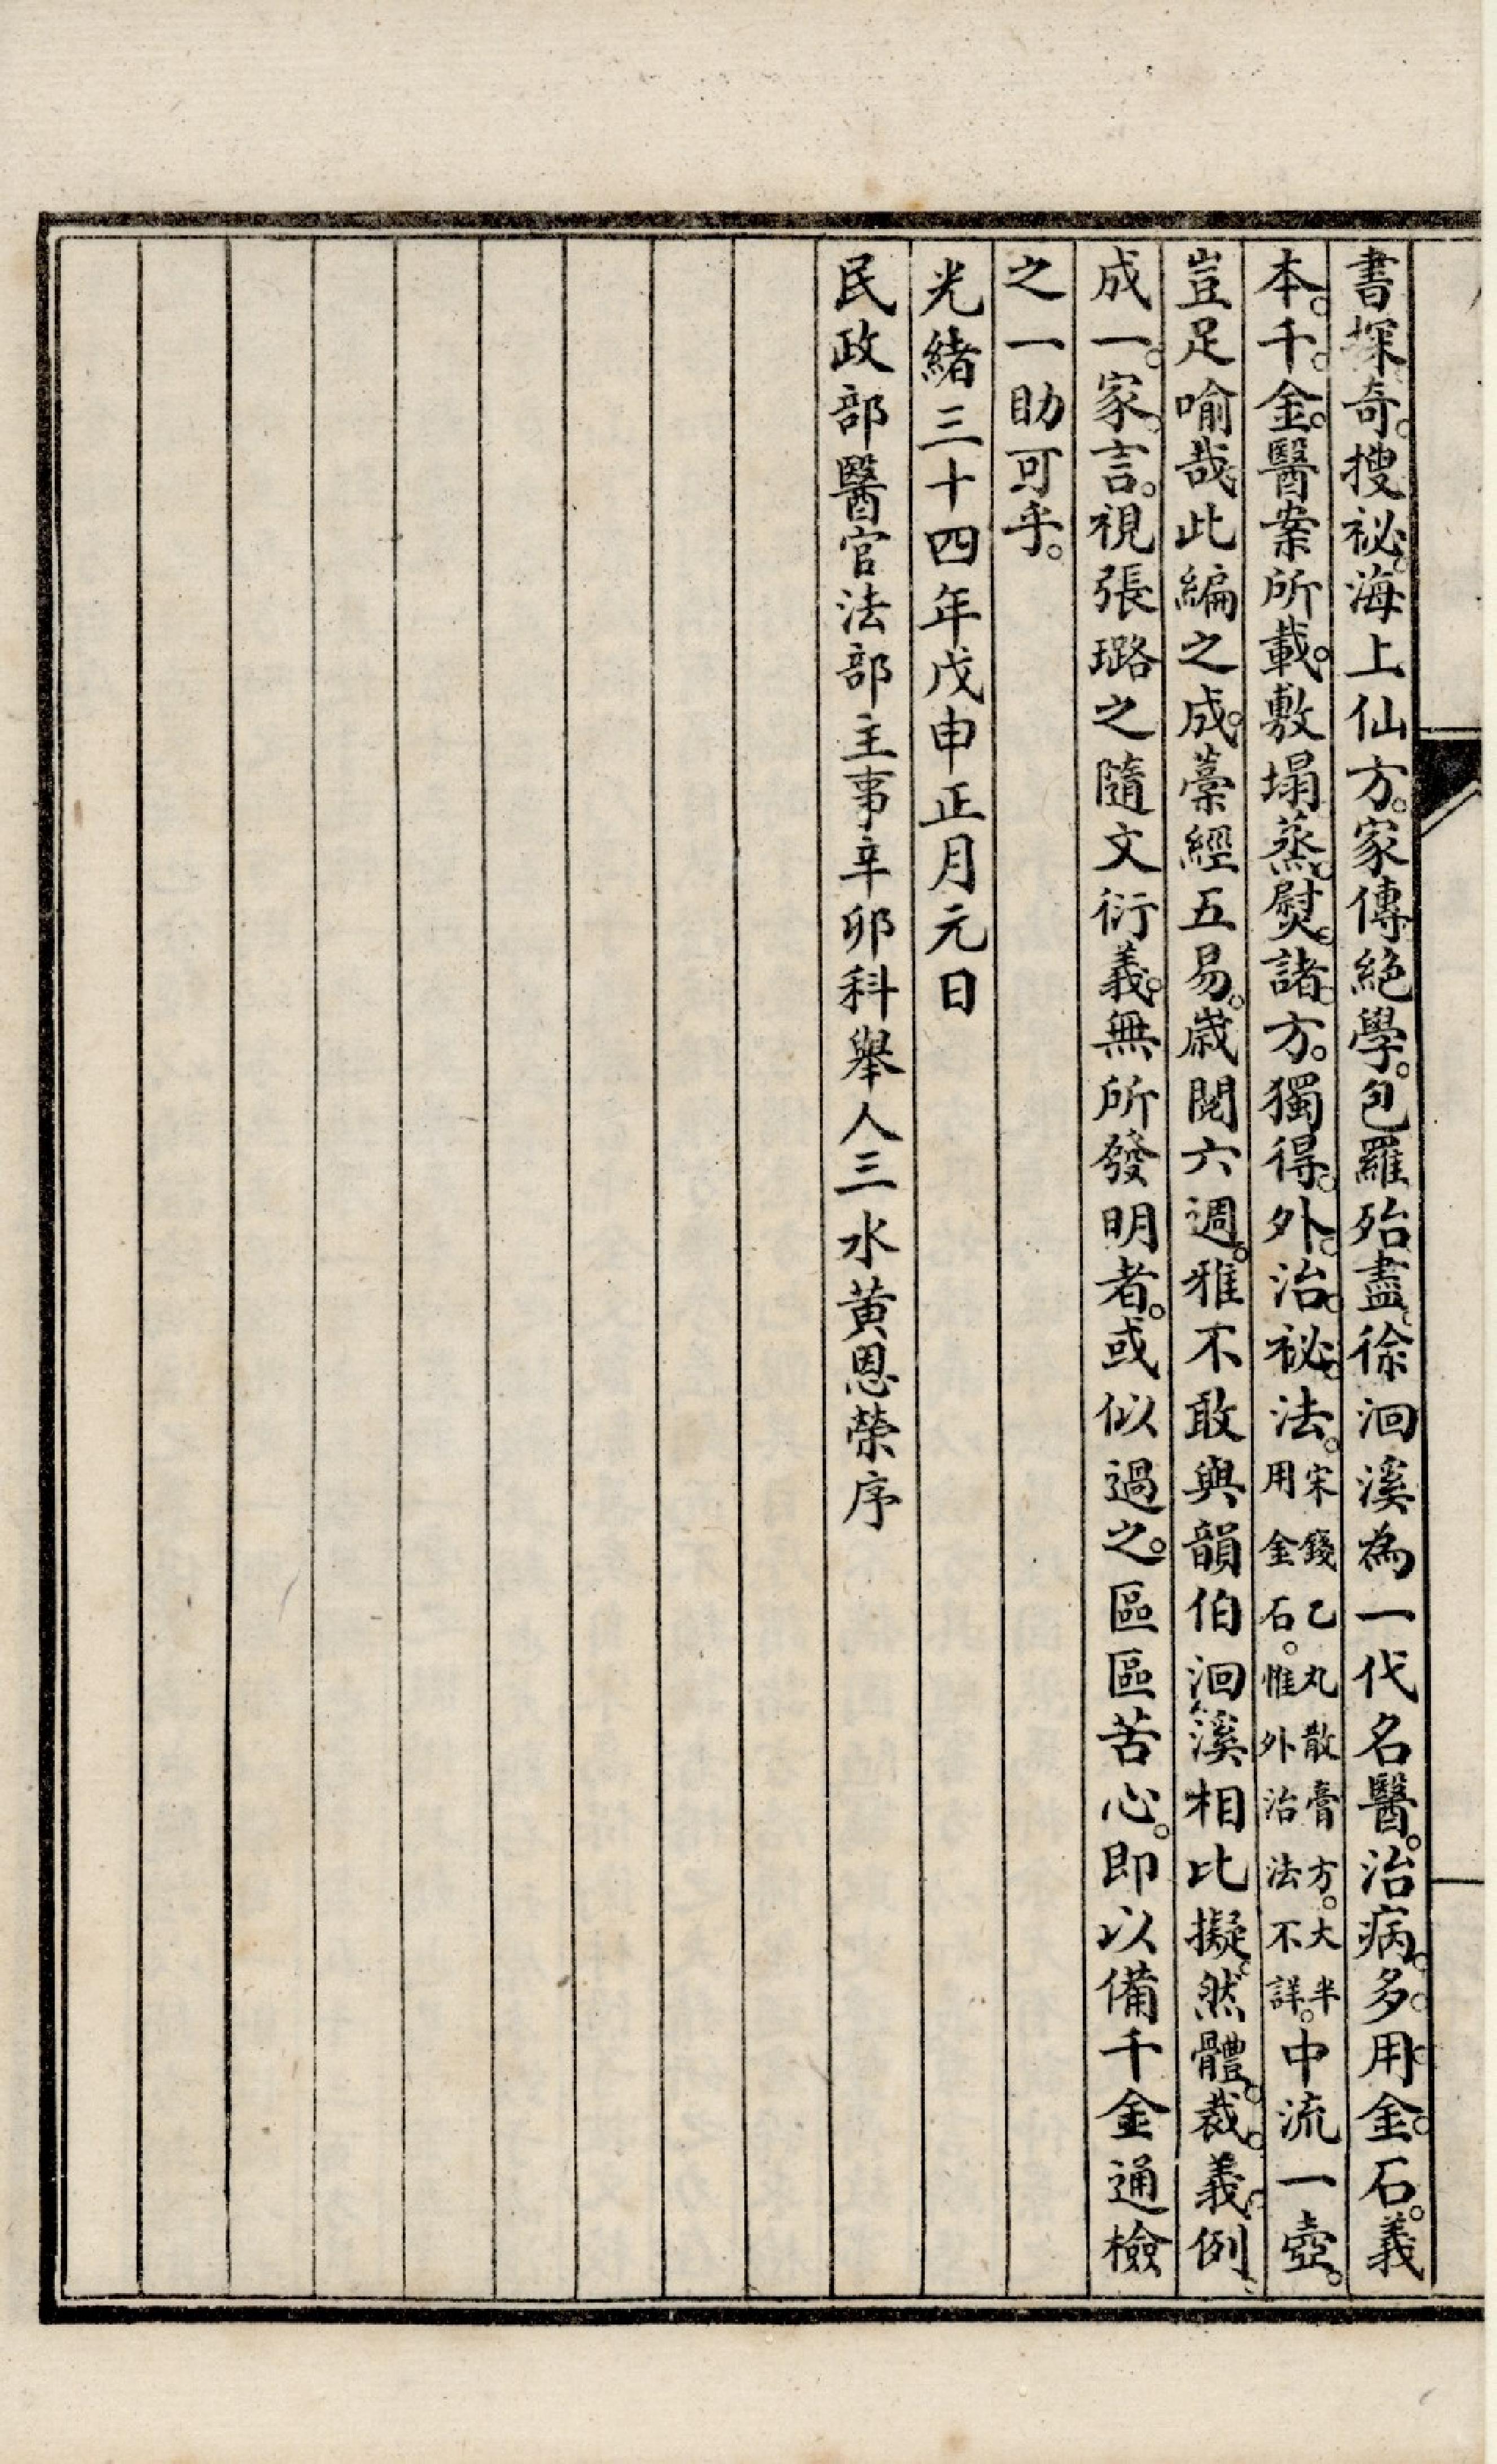 書探奇。搜祕。海上仙方。家傳絕學。包羅殆盡。徐洄溪為一代名醫。治病。多。用。金。石。義
本。千。金。醫案所載。敷塌蒸。熨。諸。方。獨得。外。治。祕。法。宋錢乙丸散膏方。大半用金石。惟外治法不詳。中流一壺。
豈足喻哉此編之成。藁經五易。歲閱六週。雅不敢與韻伯洄溪相比擬。然體。裁。義。例、
成一。家。言。視張璐之隨文衍義。無所發明者。或似過之。區區苦心。即以備千金通檢
之一助可乎。
光緒三十四年戊申正月元日
民政部醫官法部主事辛卯科舉人三水黃恩榮序